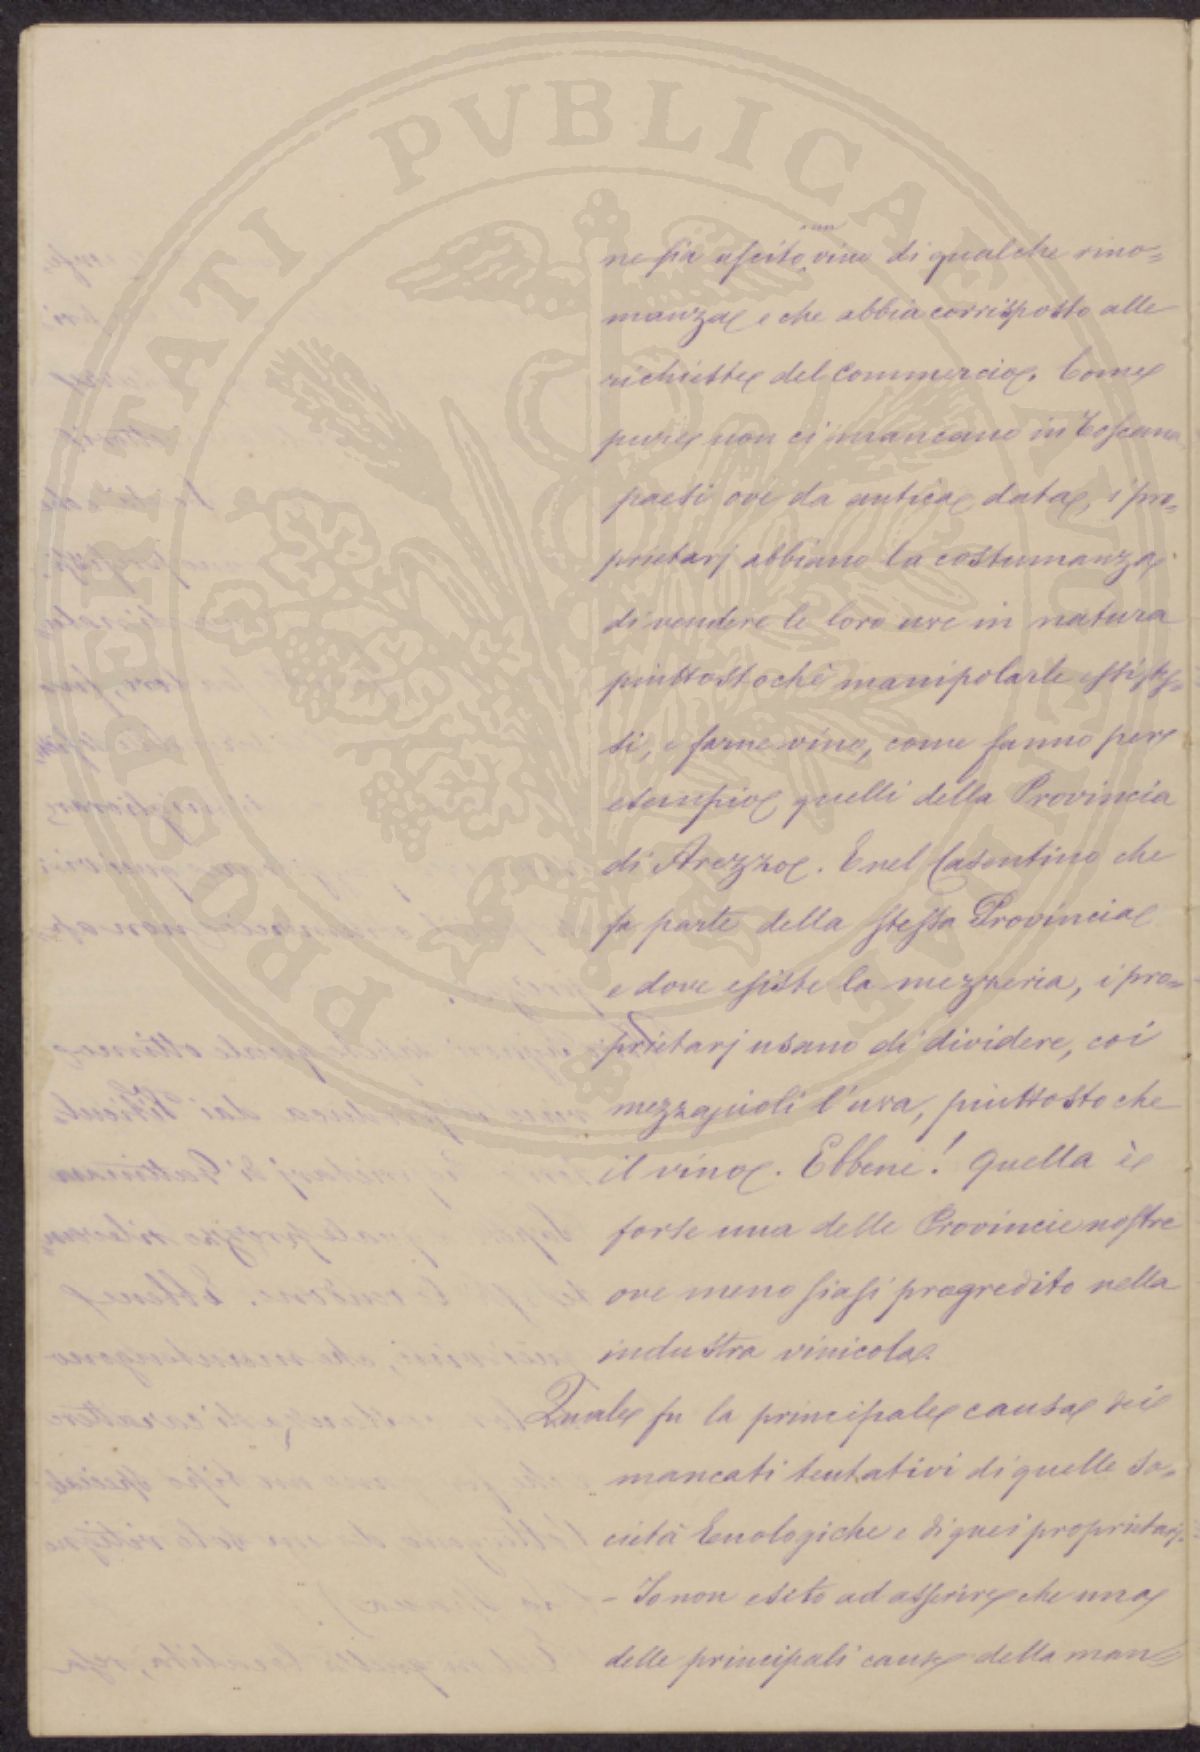 un
ne sia uscito vino di qualche rino=
manza e che abbia corrisposto alle
richieste del commercio. Come
pure non ci mancano in Toscana
paesi ove da antica data, i pro=
prietarj abbiano la costumanza
di vendere le loro uve in natura
piuttostochè manipolarle essi stes=
si, e farne vino, come fanno per
esempio quelli della Provincia
di Arezzo. E nel Casentino che
fa parte della stessa Provincia
e dove esiste la mezzeria, i pro=
prietarj usano di dividere, coi
mezzajuoli l'uva, piuttosto che
il vino. Ebbene! quella è
forse una delle Provincie nostre
ove meno siasi progredito nella
industra vinicola.
Quale fu la principale causa dei
mancati tentativi di quelle So=
cietà Enologiche e di quei proprietarj.
- Io non esito ad asserire che una
delle principali cause della man=
PROSPERITATI PVBLICAE